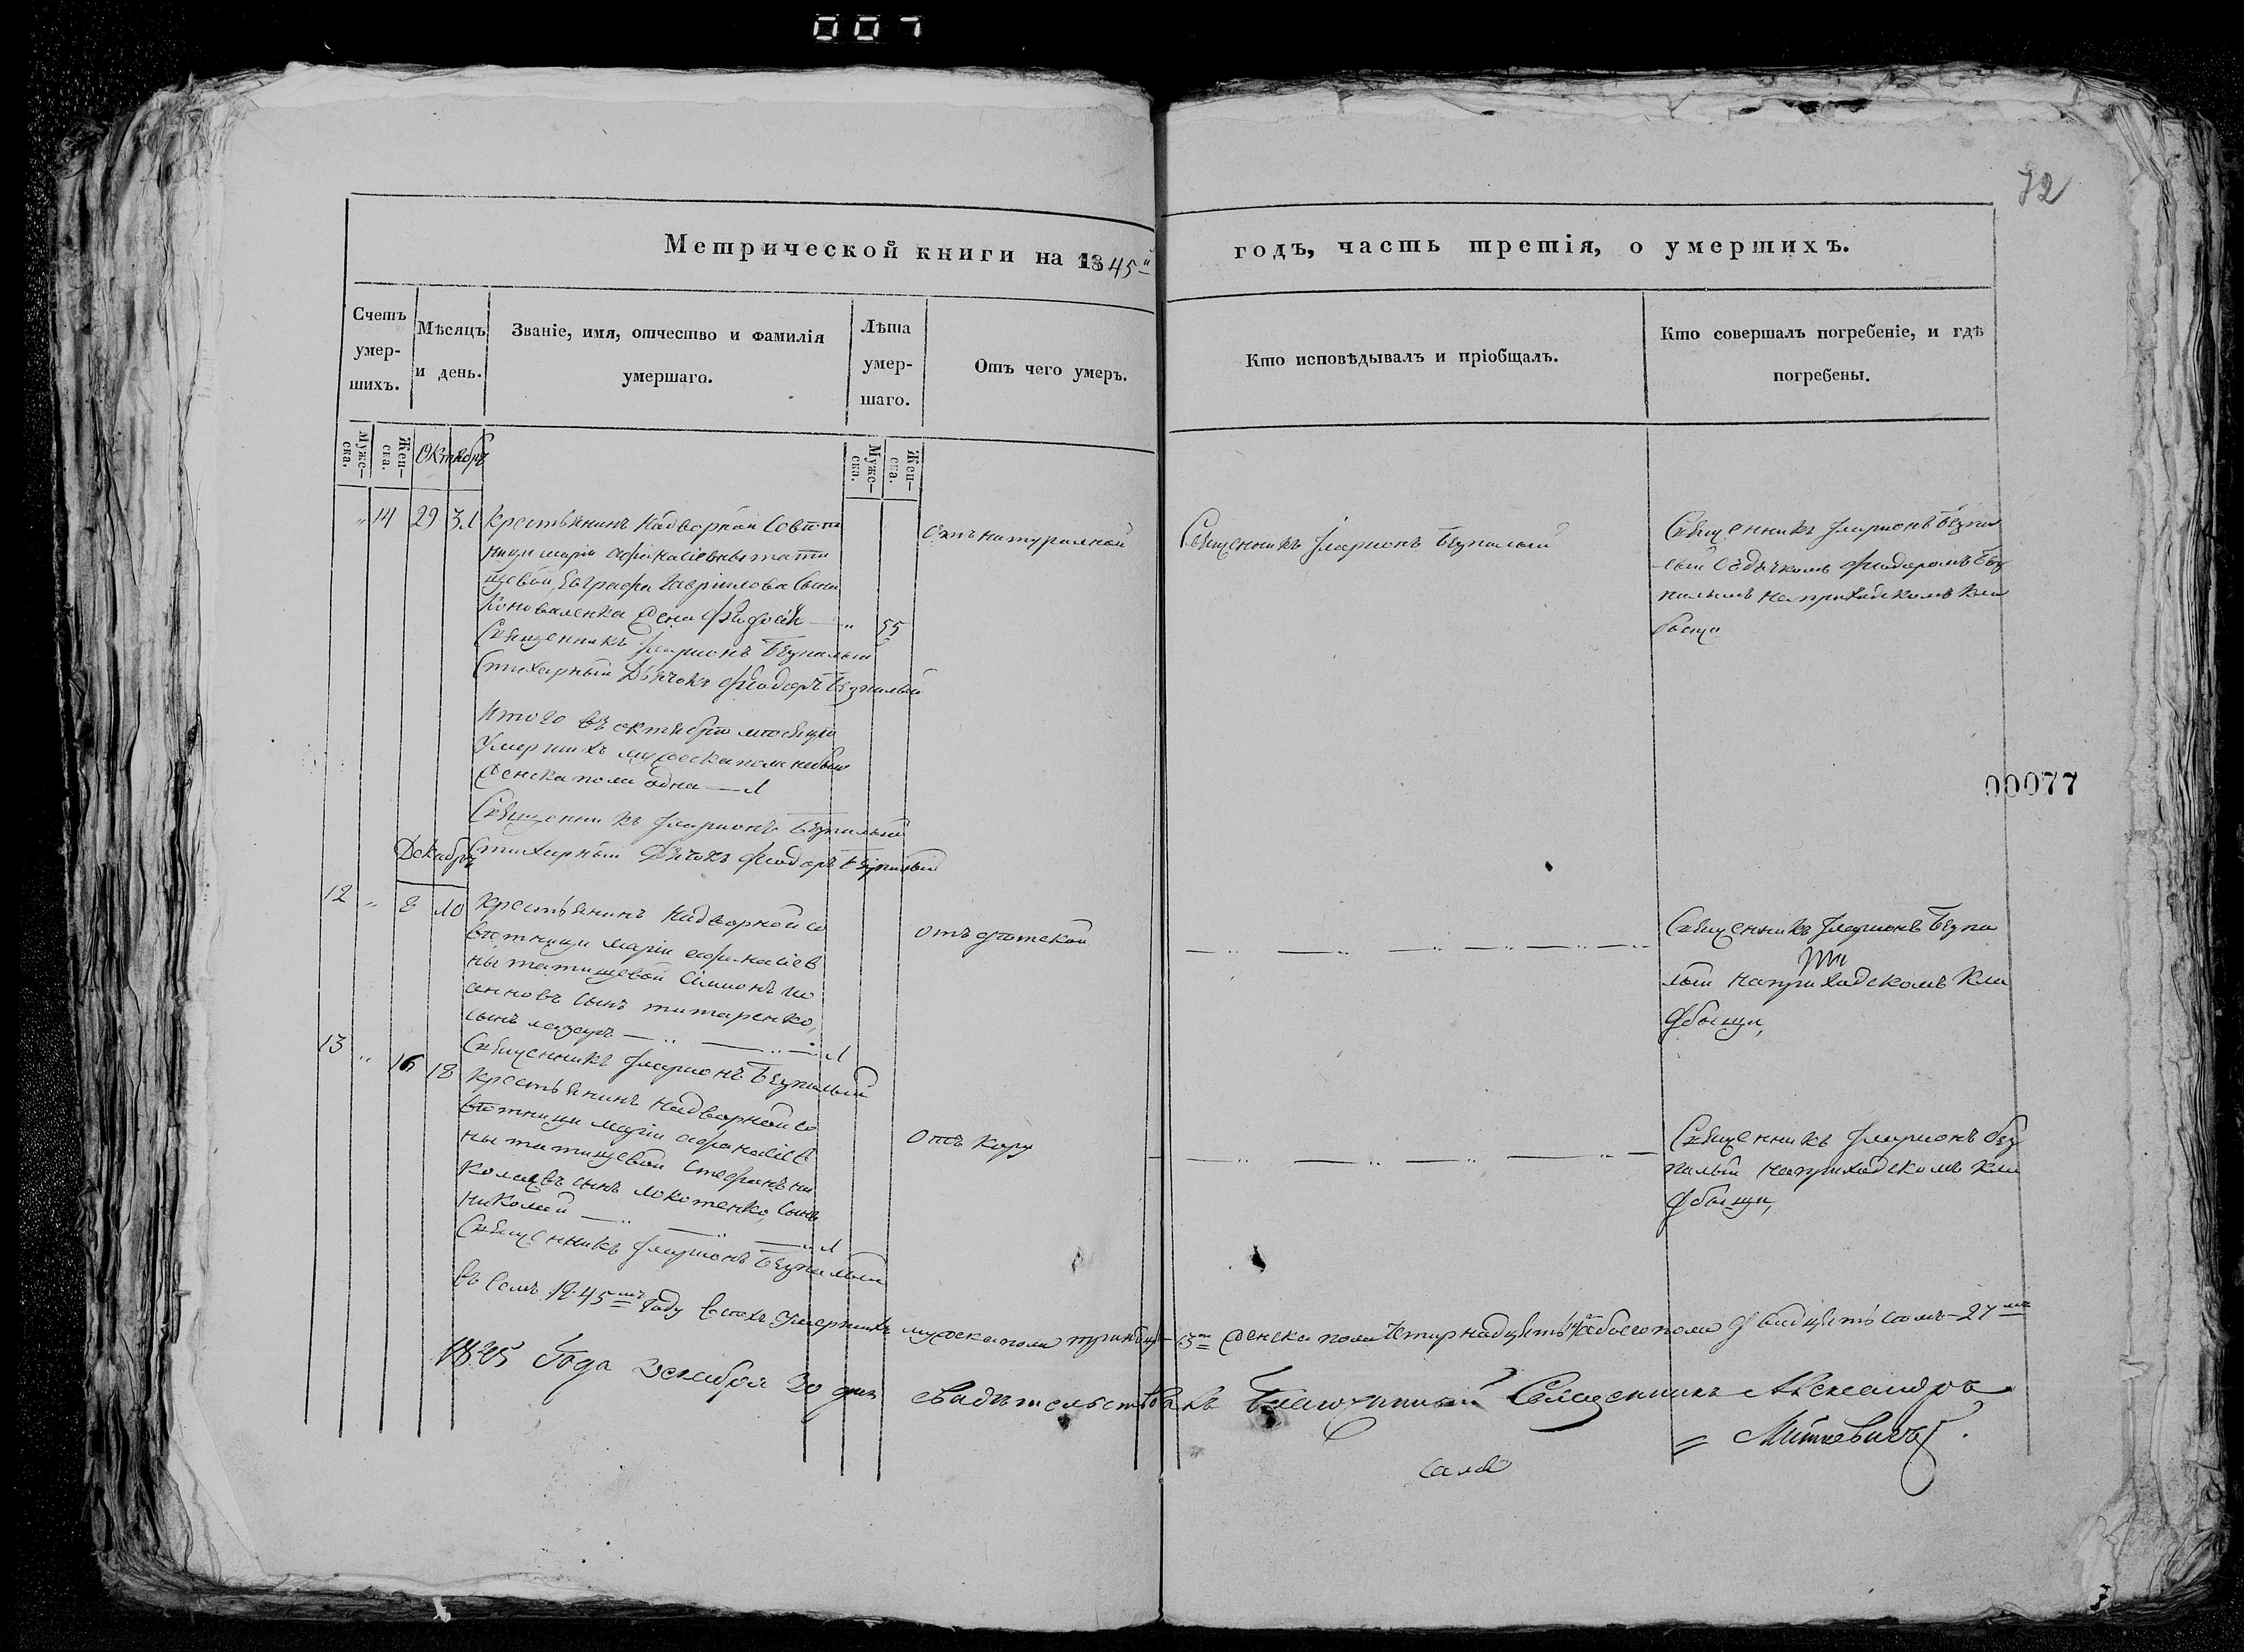 007
72
Метрической книги на 1845й
годъ, часть третія, о умершихъ.
Счетъ умер-шихъ.
Мѣсяцъ и день.
Званіе, имя, отчество и фамилія умершаго.
Лѣта умер-шаго.
Отъ чего умеръ.
Кто исповѣдывалъ и пріобщалъ.
Кто совершалъ погребеніе, и гдѣ погребены.
Муже-ска.
Жен-ска.
Октябрь
Муже-ска.
Жен-ска.
" 14 29 31
Крестьянинъ Надворной Совѣт
ницы маріи афанасіевны тати
щевой, Гавріилова сына
Коноваленка жена " 55
Священникъ Иларионъ Безпалый
Стихарный Дьячокъ Фіодоръ Безпалый
отъ натуралной
Священникъ Иларионъ Безпалый
Священникъ Иларионъ Безпа
лый Съ дьячкомъ Фіодоромъ Без
палымъ на приходскомъ кла
бищи
Итого въ октябрѣ мѣсяцѣ
умершихъ мужеска пола небыло
женска пола одна — 1
Священникъ Иларионъ Безпалый
Стихарный Дьячокъ Фіодоръ Безпалый
00077
Декабрь
12 " 8 10
Крестьянинъ Надворной со
вѣтницы маріи афанасіев
ны татищевой Сімионъ
сынъ титаренко,
сынъ лазарь — " — " — 1
Священникъ Иларионъ Безпалый
отъ
Священникъ Иларионъ Безпа
лый на приходскомъ кла
дбыщи,
13 " 16 18
Крестьянинъ Надворной со
вѣтницы маріи афанасіев
ны татищевой Стефанъ ни
колаевъ сынъ локотенко, сынъ
николай — " — " — 1
Священникъ Иларионъ Безпалый
отъ кору
Священникъ Иларионъ без
палый на приходскомъ кла
дбыщи,
въ семъ 1845мъ году всѣхъ умершихъ мужеска пола тринадц— 13 женска пола четирнадцять 14 обоего пола двадцять семъ — 27мъ
1845 Года Декабря 30 дня свидѣтельствовалъ Благочинный Священникъ Александръ
Миткевичъ.